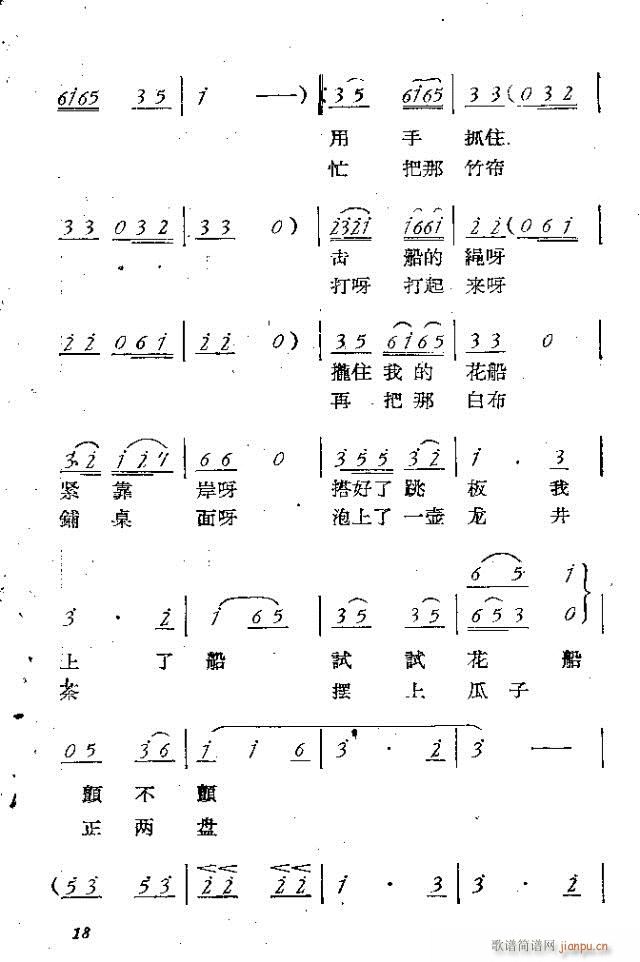 6165 35 | 1 — ) |: 35 6165 | 33 ( 032 |
用 手 抓住
忙 把那 竹帘
33 032 | 33 0 ) | 2321 1661 | 22 ( 061 |
船的 繩呀
打呀 打起 来呀
22 061 | 22 0 ) | 35 6165 | 33 0 |
攏住 我的 花船
再 把那 白布
32 | 66 0 | 3532 32 | 1 · 3 |
紧 靠 岸呀 搭好了 跳 板 我
鋪 桌 面呀 泡上了 一壶 龙 井
65 1
3 · 2 | 1 65 | 35 35 | 653 0 |
上 了 船 試 試 花 船
茶 摆 上 瓜 子
05 36 | 1 1 6 | 3 · 2 | 3 — |
顫 不 顫
正 两 盘
( 53 53 | 22 22 | 1 · 3 | 3 · 2 |
18
歌谱简谱网 jianpu.cn